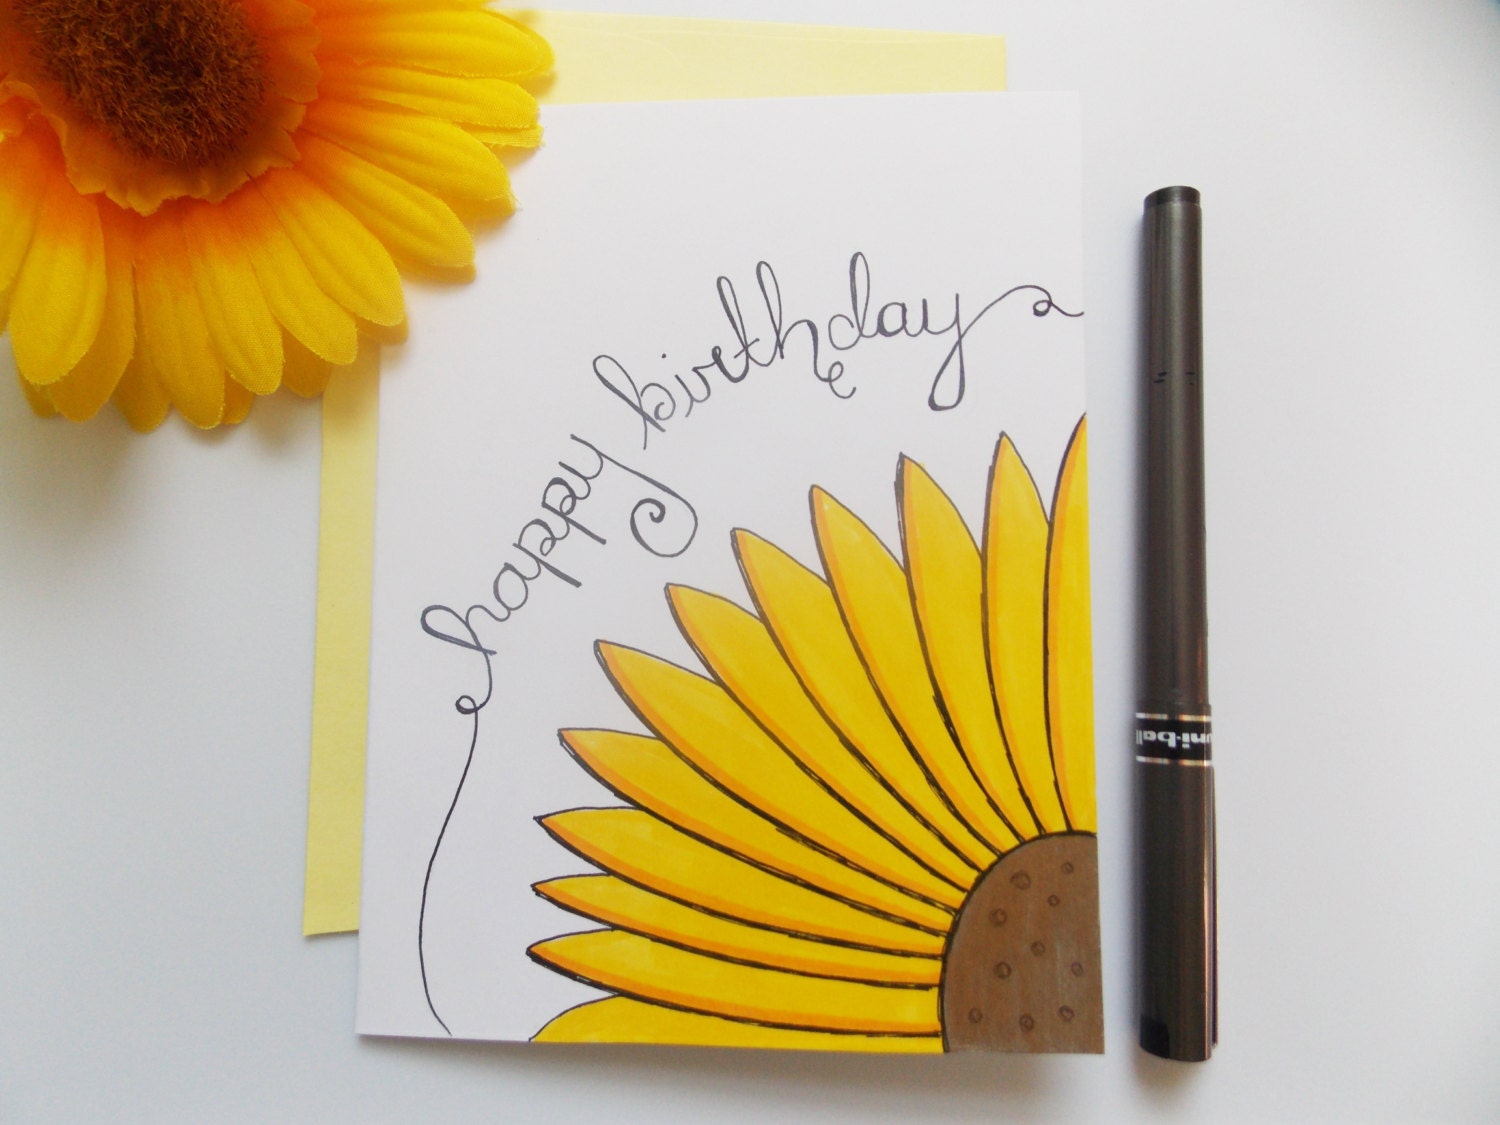 happy birthday
uni-ball